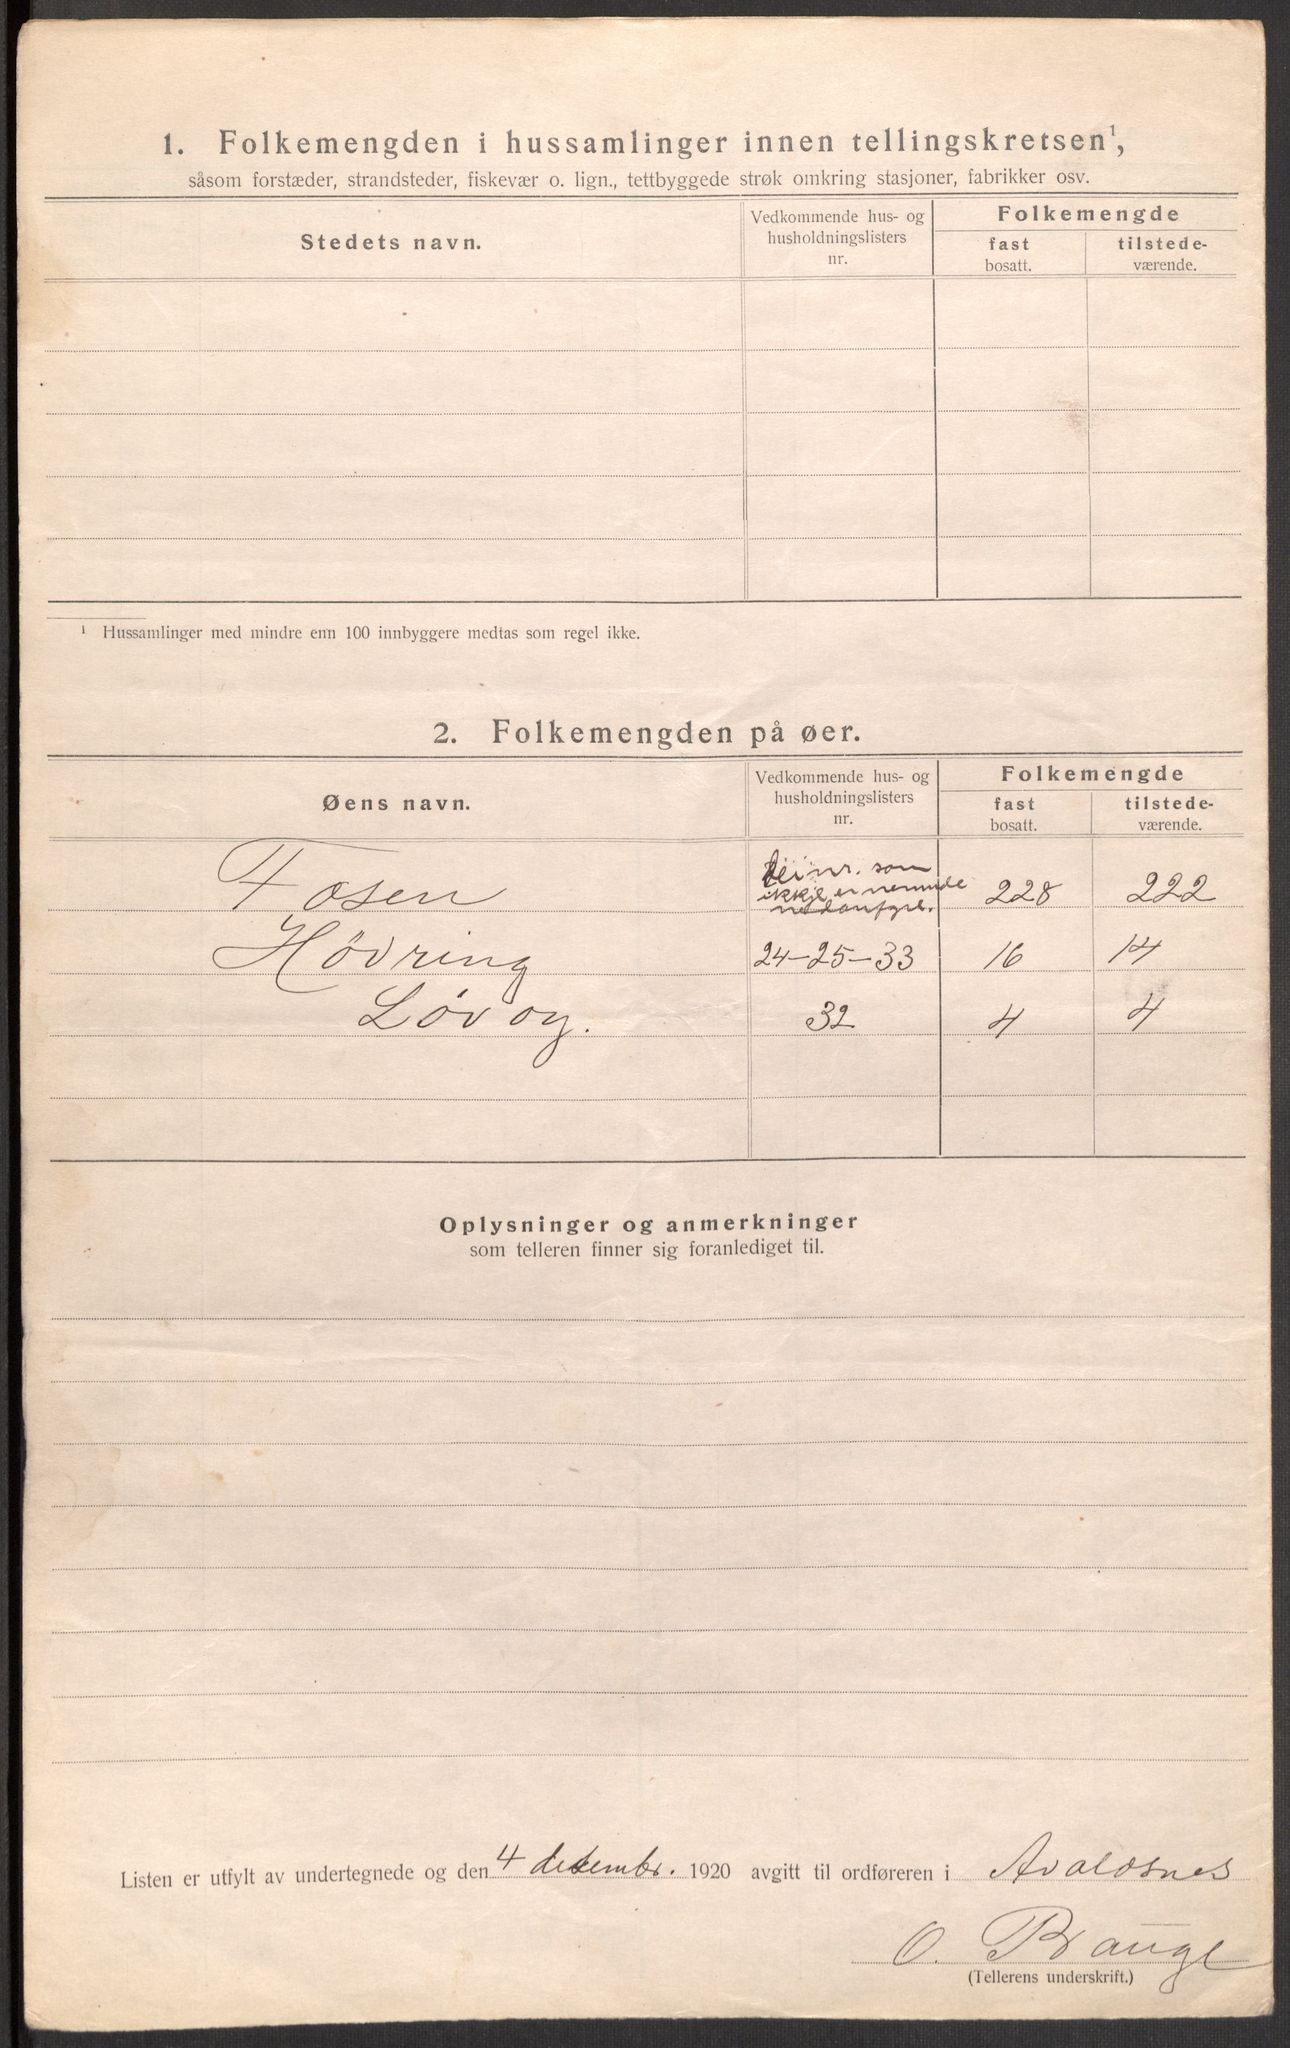 1. Folkemengden i hussamlinger innen tellingskretsen¹,
såsom forstæder, strandsteder, fiskevær o. lign., tettbyggede strøk omkring stasjoner, fabrikker osv.
Stedets navn.
Vedkommende hus- og
husholdningslisters
nr.
Folkemengde
fast
bosatt.
tilstede-
værende.
¹ Hussamlinger med mindre enn 100 innbyggere medtas som regel ikke.
2. Folkemengden på øer.
Øens navn.
Vedkommende hus- og
husholdningslisters
nr.
Folkemengde
fast
bosatt.
tilstede-
værende.
Fosen
dei nr. som
ikkje er nemnde
228 222
Høvring 24-25-33 16 14
Løvøy. 32 4 4
Oplysninger og anmerkninger
som telleren finner sig foranlediget til.
Listen er utfylt av undertegnede og den 4 desembr. 1920 avgitt til ordføreren i Avaldsnes
O. Bauge
(Tellerens underskrift.)